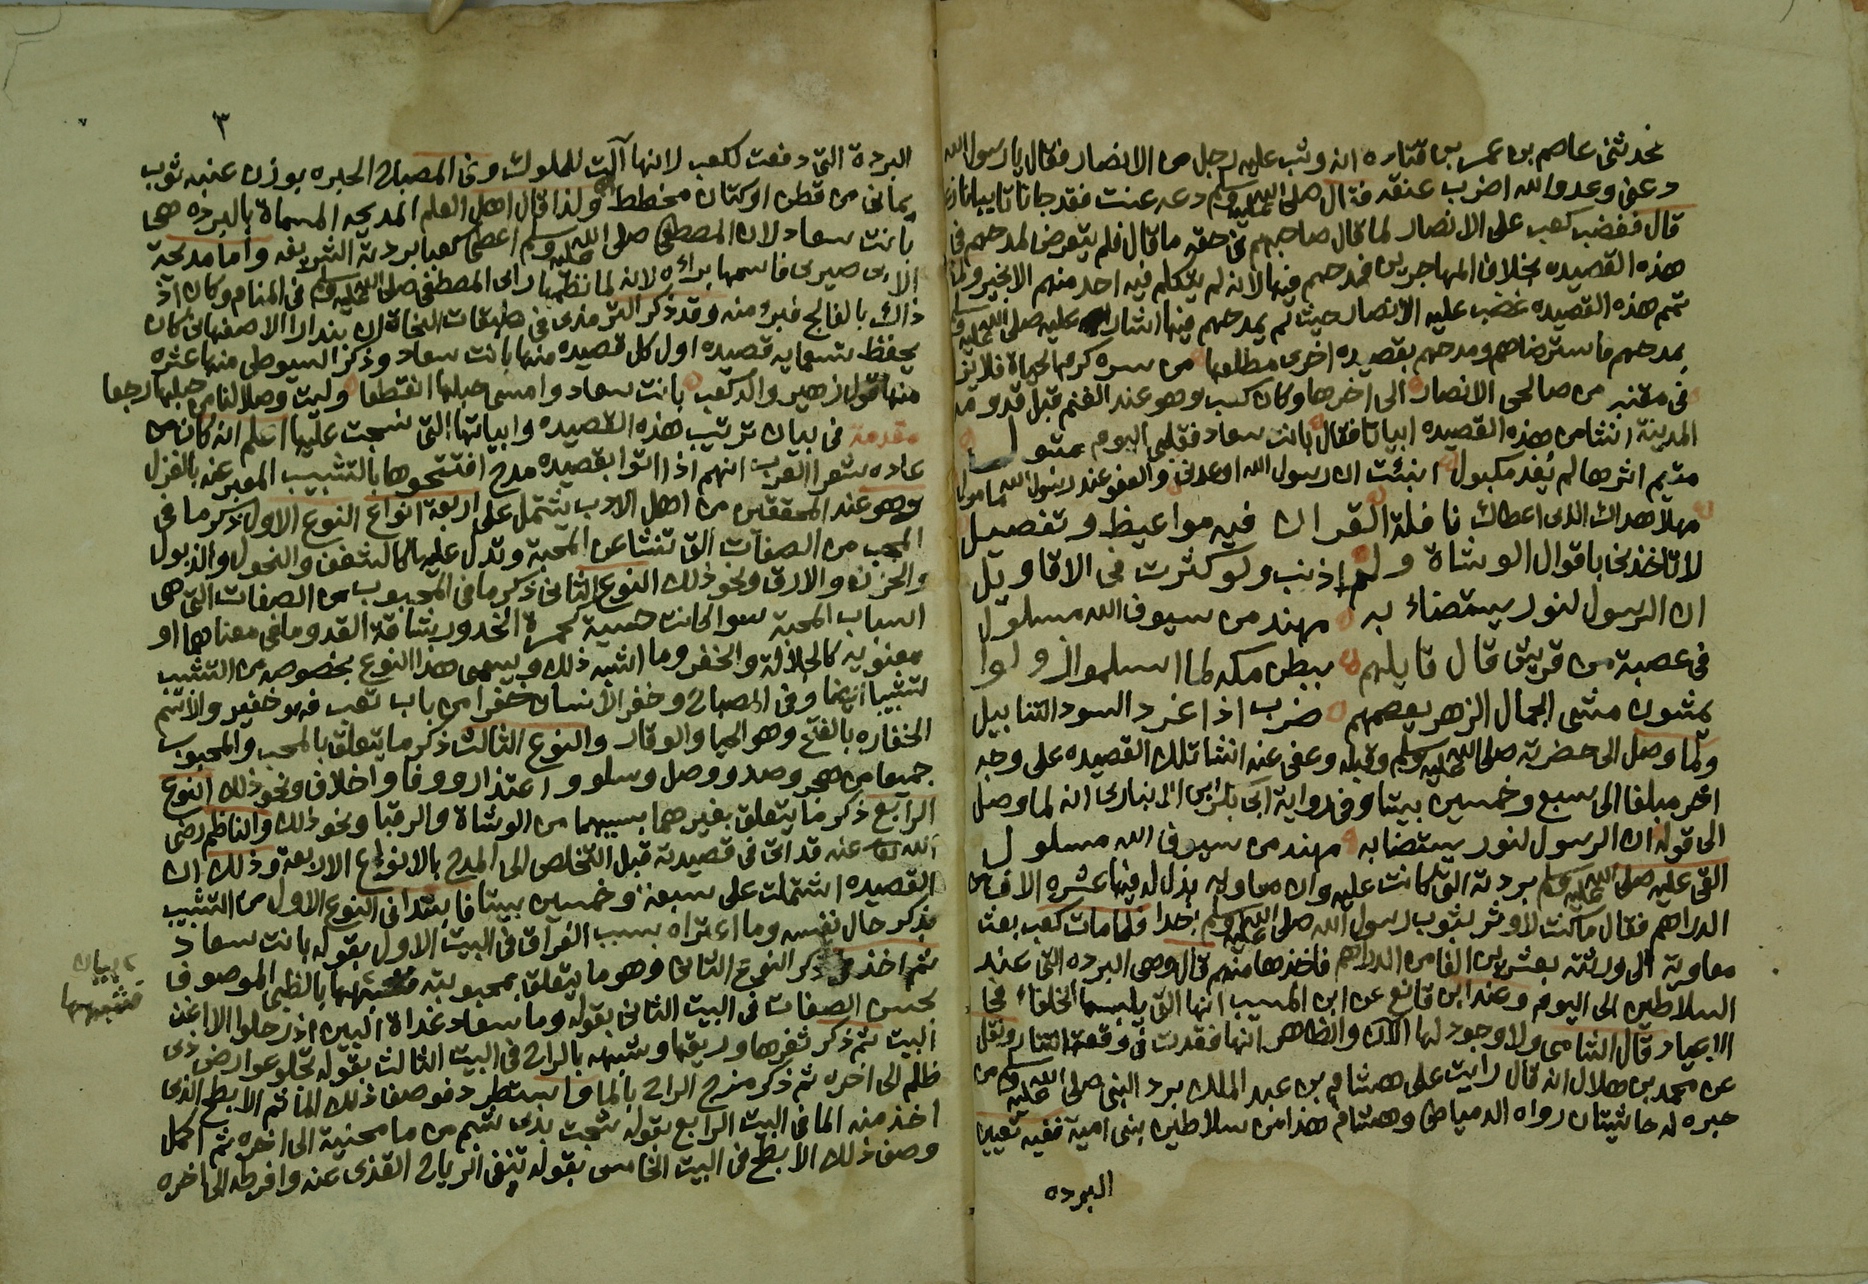 فحدثنى عاصم بن عمر بن قتاده انه وثب عليه رجل من الانصار فقال يا رسول الله
دعنى وعدو الله اضرب عنقه فقال صلى الله عليه وسلم دعه عنك فقد جانا تايبا نازعا
قال فغضب كعب على الانصار لما قال صاحبهم فى حقه ما قال فلم يتعرض لمدحهم فى
هذه القصيده بخلاف المهاجرين فمدحهم فيها لانه لم يتكلم فيه احد منهم الا بخير ولما
تمم هذه القصيده غضب عليه الانصار حيث لم يمدحهم فيها اشار عليه صلى الله عليه وسلم
بمدحهم فاسترضاهم ومدحهم بقصيده اخرى مطلعها من سره كرم الحياة فلا يزل
فى مقنب من صالحى الانصار الى اخرها وكان كعب وهو عند الغنم قبل قدومه
المدينة انشا من هذه القصيده ابياتا فقال بانت سعاد فقلبى اليوم متبول
متيم اثرها لم يفد مكبول انبئت ان رسول الله اوعدنى والعفو عند رسول الله مامول
مهلا هداك الذى اعطاك نافلة القران فيه مواعيظ وتفصيل
لا تاخذنى باقوال الوشاة ولم اذنب ولو كثرت فى الاقاويل
ان الرسول لنور يستضاء به مهند من سيوف الله مسلول
فى عصبة من قريش قال قايلهم ببطن مكه لما اسلموا زولوا
يمشون مشى الجمال الزهر يعصمهم ضرب اذا غرد السود التنابيل
ولما وصل الى حضرته صلى الله عليه وسلم وقبله وعفى عنه انشا تلك القصيده على وجه
اخر مبلغا الى سبع وخمسين بيتا وفى رواية ابى بكر بن الانبارى انه لما وصل
الى قوله ان الرسول لنور يستضا به مهند من سيوف الله مسلول
القى عليه صلى الله عليه وسلم بردته التى كانت عليه وان معاويه بذل له فيها عشره الاف من
الدراهم فقال ما كنت لاوثر بثوب رسول الله صلى الله عليه وسلم احدا فلما مات كعب بعث
معاوية الى ورثته بعشرين الفا من الدراهم فاخذها منهم قال وهى البرده التى عند
السلاطين الى اليوم وعند ابن قانع عن ابن المسيب انها التى يلبسها الخلفاء فى
الاعياد قال الشامى ولا وجود لها الان والظاهر انها فقدت فى وقعة التتار ونقل
عن محمد بن هلال انه قال رايت على هشام بن عبد الملك برد النبى صلى الله عليه وسلم من
حبره له حاشيتان رواه الدمياطى وهشام هذا من سلاطين بنى امية ففيه تعيين
البرده
٣
البردة التى دفعت لكعب لانها آلت للملوك وفى المصباح الحبره بوزن عنبه ثوب
يمانى من قطن او كتان مخطط ولذا قال اهل العلم المديحه المسماة بالبرده هى
بانت سعاد لان المصطفى صلى الله عليه وسلم اعطى كعبا بردته الشريفه واما مديحة
الابوصيرى فاسمها براءه لانه لما نظمها راى المصطفى صلى الله عليه وسلم فى المنام وكان اذ
ذاك بالفالج فبرء منه وقد ذكر الترمذى فى طبقات النحاة ان بندار الاصفهانى كان
يحفظ تسعمايه قصيده اول كل قصيده منها بانت سعاد وذكر السيوطى منها عشره
منها قول زهير والد كعب بانت سعاد وامسى حبلها انقطعا وليت وصلا لنا من حبلها رجعا
مقدمة فى بيان ترتيب هذه القصيده وابياتها التى نسجت عليها اعلم انه كان من
عاده شعرا العرب انهم اذا اتوا بقصيده مدح افتتحوها بالتشبيب المعبر عنه بالغزل
وهو عند المحققين من اهل الادب يشتمل على اربعة انواع النوع الاول ذكر ما فى
المحب من الصفات التى تنشا عن المحبة وتدل عليها كالشغف والنحول والذبول
والحزن والارق ونحو ذلك النوع الثانى ذكر ما فى المحبوب من الصفات التى هى
اسباب المحبة سوا كانت حسية كحمرة الخد ورشاقة القد وما فى معناهما او
معنويه كالجلالة والخفر وما اشبه ذلك ويسمى هذا النوع بخصوصه من التشبيب
تشبيبا ايضا وفى المصباح وخفر الانسان خفرا من باب تعب فهو خفير والاسم
الخفاره بالفتح وهو الحيا والوقار والنوع الثالث ذكر ما يتعلق بالمحب والمحبوب
جميعا من هجر وصد ووصل وسلو واعتذار ووفا واخلاف ونحو ذلك النوع
الرابع ذكر ما يتعلق بغيرهما بسببهما من الوشاة والرقبا ونحو ذلك والناظم رضى
الله تعا عنه قد اتى فى قصيدته قبل التخلص الى المدح بالانواع الاربعة وذلك ان
القصيده اشتملت على سبعة وخمسين بيتا فابتدا فى النوع الاول من التشبيب
بذكر حال نفسه وما اعتراه بسبب الفراق فى البيت الاول بقوله بانت سعاد
ثم اخذ فى ذكر النوع الثانى وهو ما يتعلق بمحبوبته فشبهها بالظبى الموصوف
بحسن الصفات فى البيت الثانى بقوله وما سعاد غداة البين اذ رحلوا الا اغن
البيت ثم ذكر ثغرها وريقها وشبهه بالراح فى البيت الثالث بقوله تجلو عوارض ذى
ظلم الى اخره ثم ذكر مزج الراح بالما واستطرد فوصف ذلك الما ثم الابطح الذى
اخذ منه الما فى البيت الرابع بقوله شجت بذى شبم من ما محنية الى اخره ثم اكمل
وصف ذلك الابطح فى البيت الخامس بقوله تنفى الرياح القذى عنه وافرطه الى اخره
بيان
فشبهها